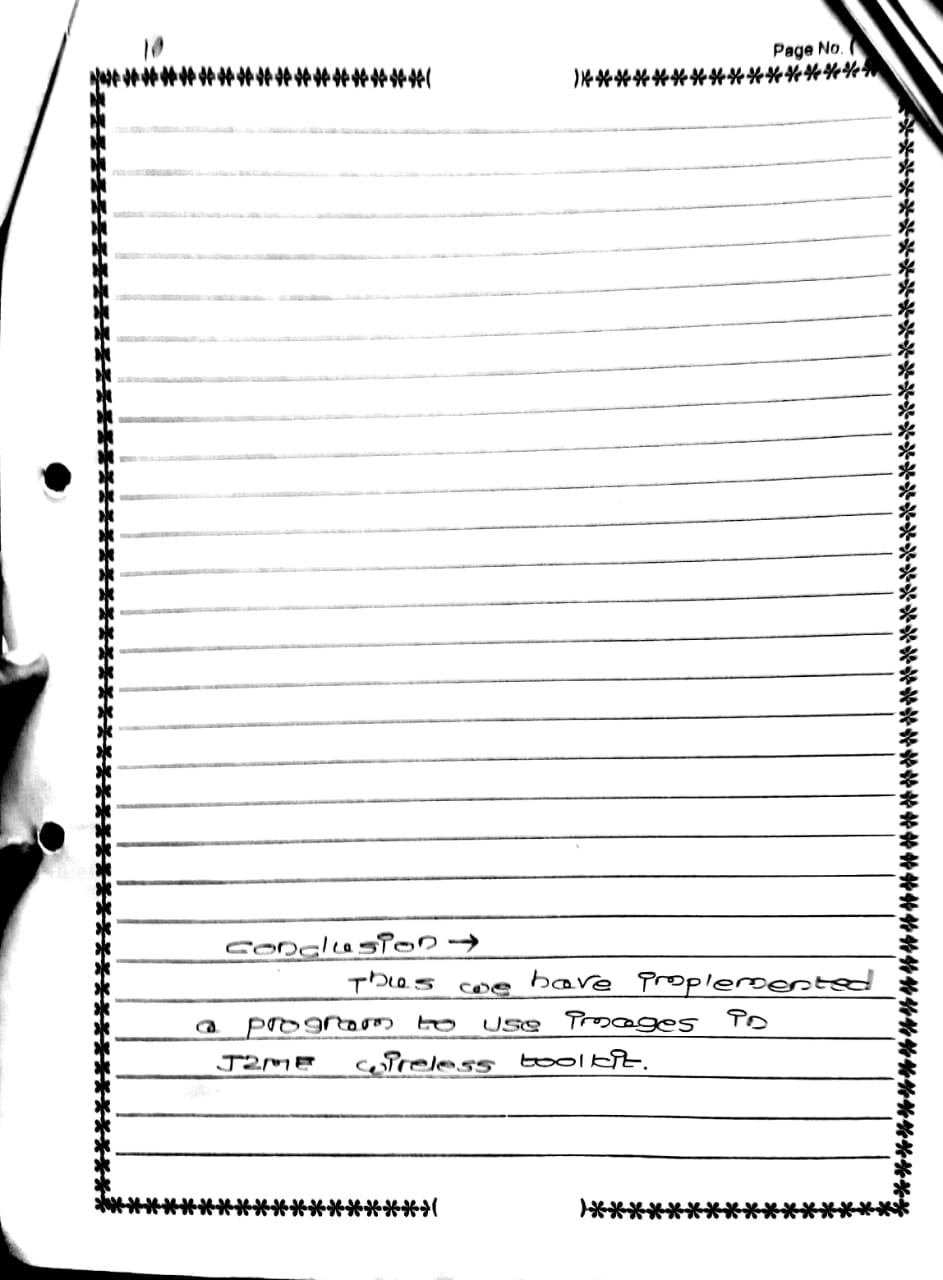 10
Page No. (
Conclusion →
Thus we have implemented
a program to use images in
J2ME wireless toolkit.